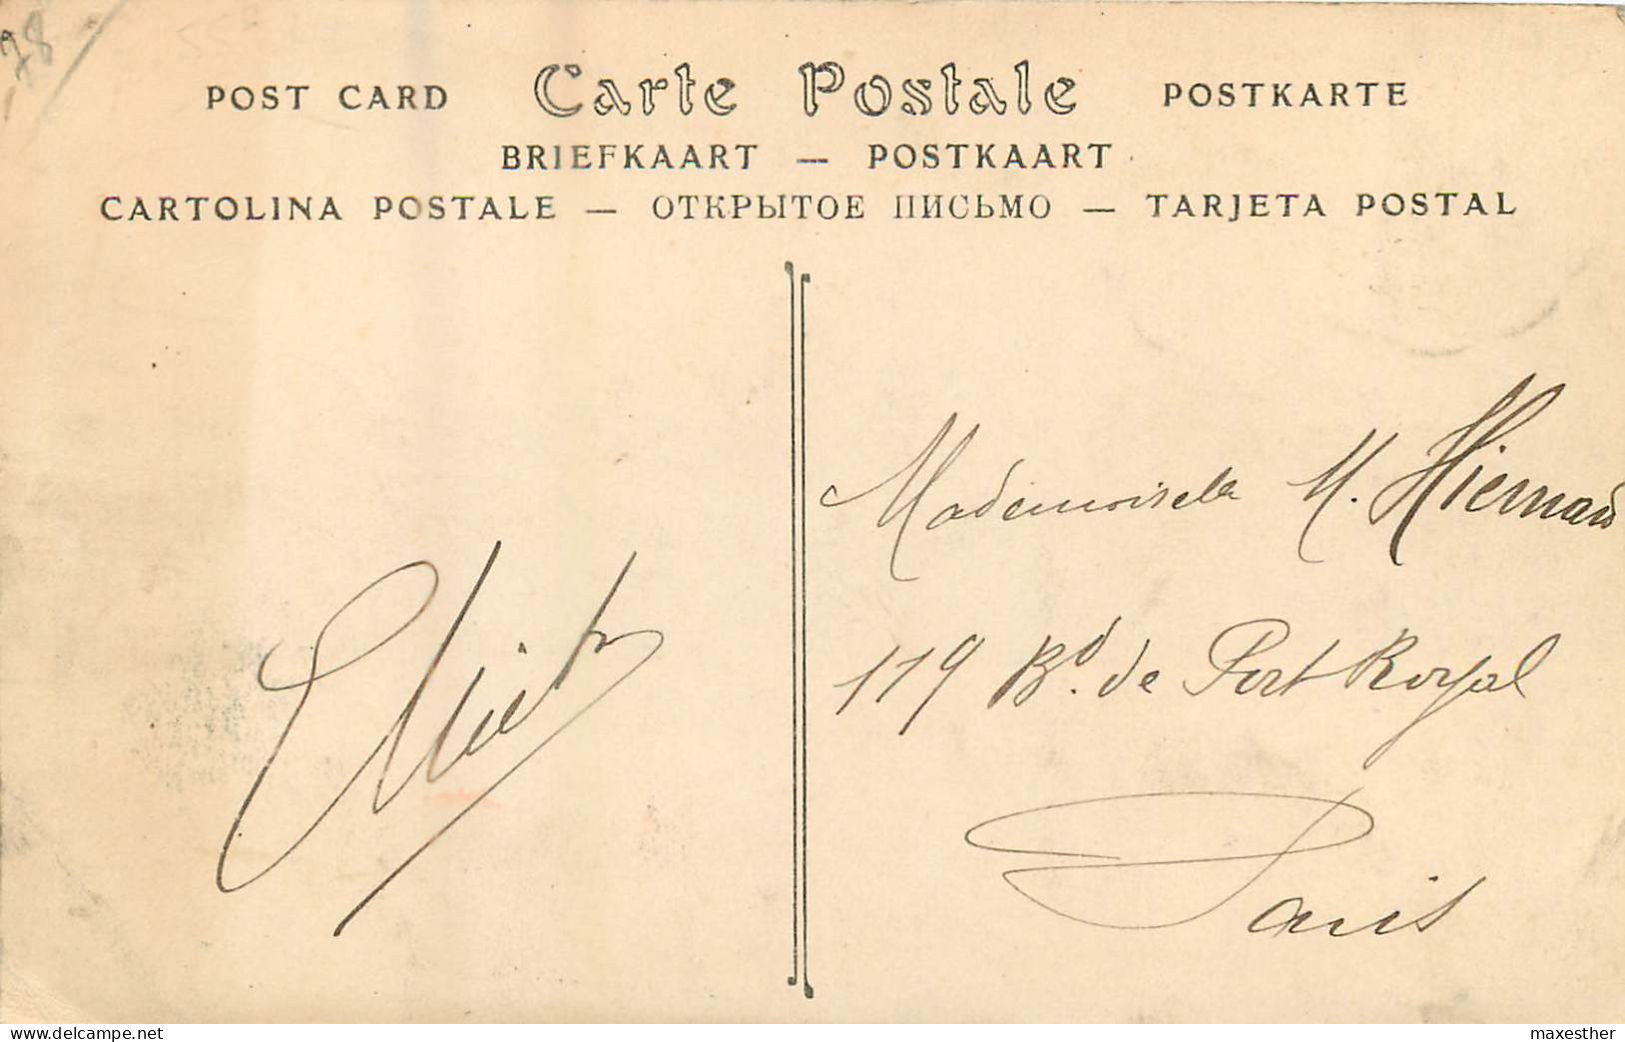 78
POST CARD Carte Postale POSTKARTE
BRIEFKAART — POSTKAART
CARTOLINA POSTALE — ОТКРЫТОЕ ПИСЬМО — TARJETA POSTAL
Mademoiselle M. Hiernard
119 Bd. de Port Royal
Paris
delcampe.net
maxesther